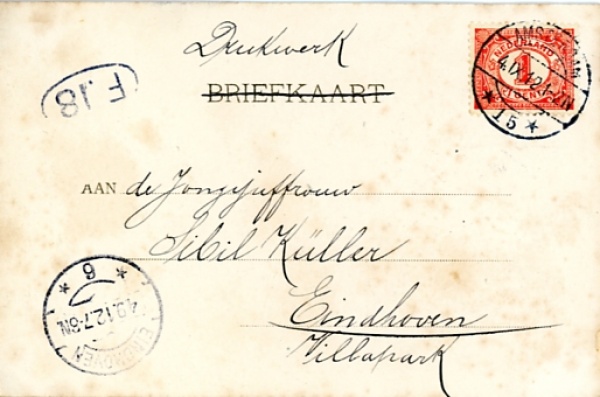 Drukwerk
BRIEFKAART
F.18
NEDERLAND
1
CENT
AMSTERDAM
4.IX.12.1-2N
* 15 *
AAN de Jongejuffrouw
Sibil Küller
Eindhoven
Villapark
* 6 *
4.9.12.7-8N
EINDHOVEN